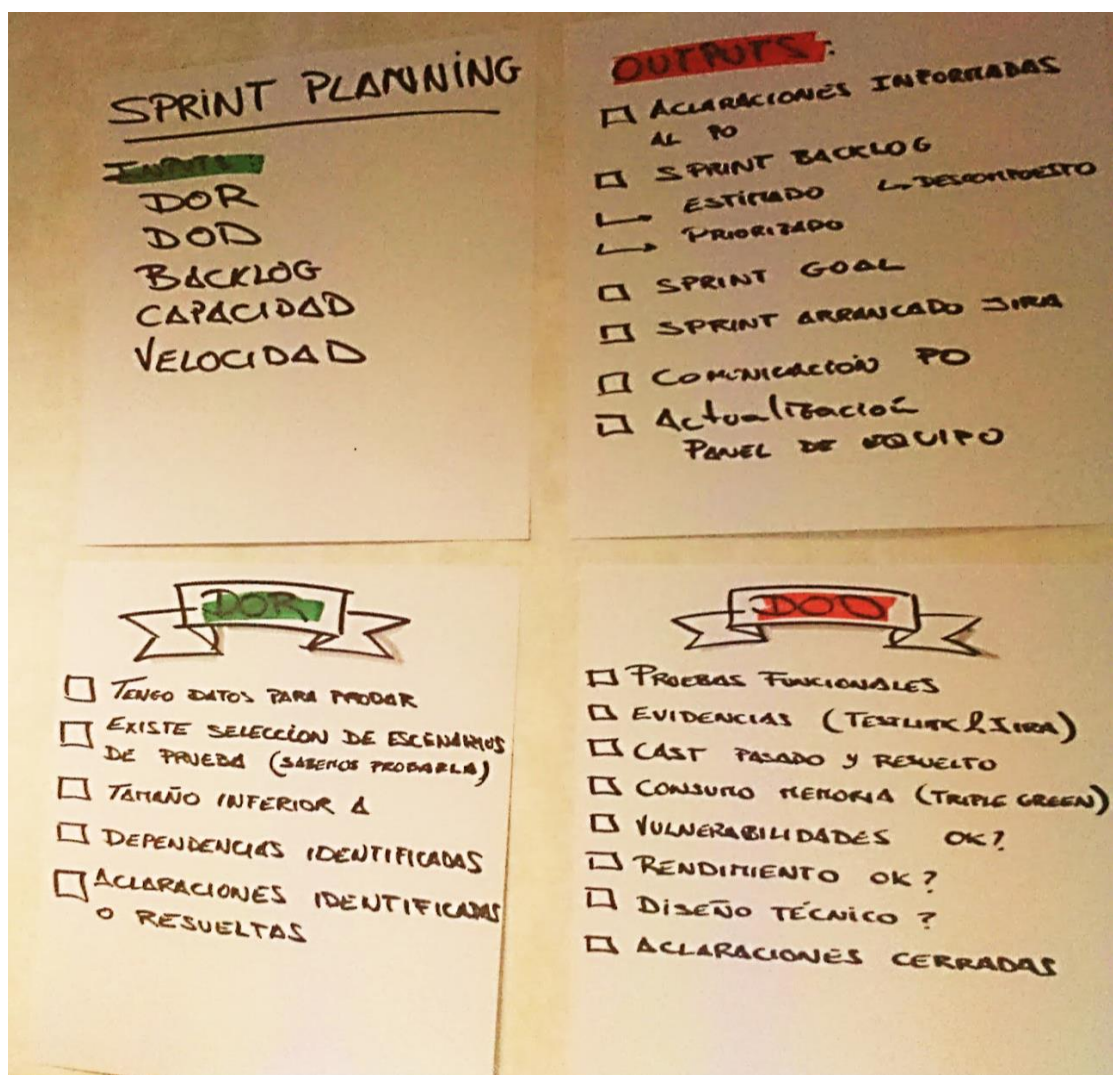 SPRINT PLANNING
INPUTS:
DOR
DOD
BACKLOG
CAPACIDAD
VELOCIDAD
OUTPUTS:
ACLARACIONES INFORMADAS
AL PO
SPRINT BACKLOG
ESTIMADO ↳ DESCOMPUESTO
PRIORIZADO
SPRINT GOAL
SPRINT ARRANCADO JIRA
COMUNICACIÓN PO
Actualización
PANEL DE EQUIPO
DOR
TENGO DATOS PARA PROBAR
EXISTE SELECCIÓN DE ESCENARIOS
DE PRUEBA (SABEMOS PROBARLA)
TAMAÑO INFERIOR A
DEPENDENCIAS IDENTIFICADAS
ACLARACIONES IDENTIFICADAS
O RESUELTAS
DOD
PRUEBAS FUNCIONALES
EVIDENCIAS (TESTLINK & JIRA)
CAST PASADO Y RESUELTO
CONSUMO MEMORIA (TRIPLE GREEN)
VULNERABILIDADES OK?
RENDIMIENTO OK?
DISEÑO TÉCNICO?
ACLARACIONES CERRADAS